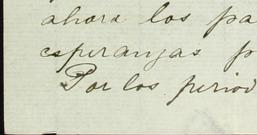 ahora los pa
esperanzas p
Por los period